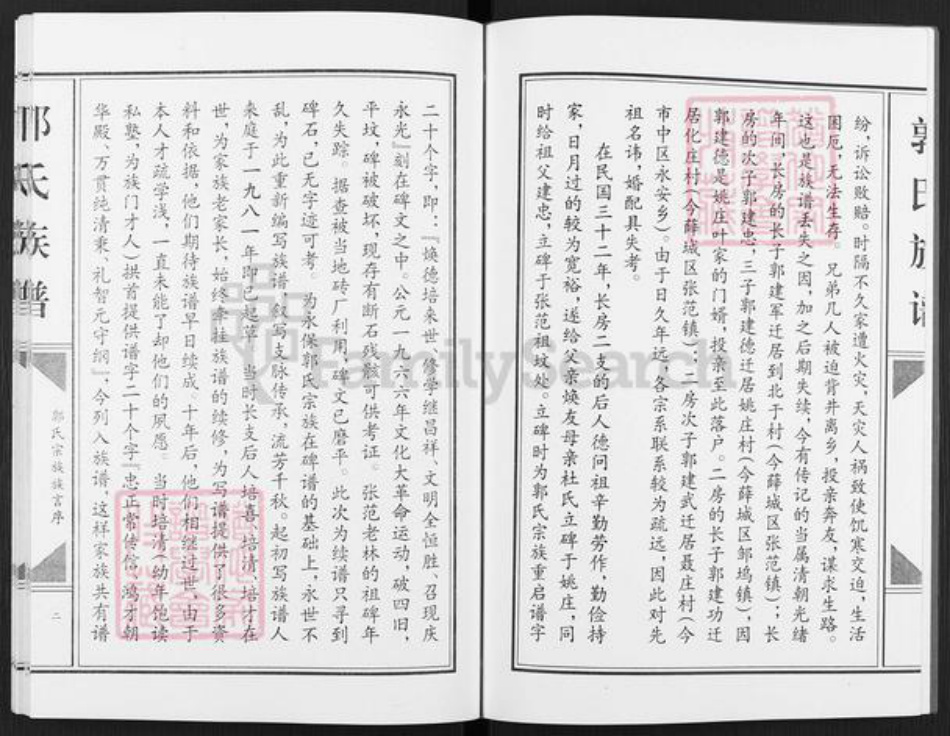 纷，诉讼败赔。时隔不久家遭火灾，天灾人祸致使饥寒交迫，生活
困厄，无法生存。兄弟几人被迫背井离乡，投亲奔友，谋求生路。
这也是族谱丢失之因，加之后期失续，今有传记的当属清朝光绪
年间，长房的长子郭建军迁居到北于村（今薛城区张范镇）；长
房的次子郭建忠，三子郭建德迁居姚庄村（今薛城区邹坞镇），因
郭建德是姚庄叶家的门婿，投亲至此落户。二房的长子郭建功迁
居化庄村（今薛城区张范镇）；二房次子郭建武迁居聂庄村（今
市中区永安乡）。由于日久年远，各宗系联系较为疏远，因此对先
祖名讳，婚配具失考。
在民国三十二年，长房二支的后人德问祖辛勤劳作，勤俭持
家，日月过的较为宽裕，遂给父亲焕友母亲杜氏立碑于姚庄，同
时给祖父建忠，立碑于张范祖坟处。立碑时为郭氏宗族重启谱字
二十个字，即：『焕德培来世、修学继昌祥、文明全恒胜、召现庆
永光』刻在碑文之中。公元一九六六年文化大革命运动，破四旧，
平坟，碑被破坏，现存有断石残骸可供考证。张范老林的祖碑年
久失踪。据查被当地砖厂利用，碑文已磨平。此次为续谱只寻到
碑石，已无字迹可考。为永保郭氏宗族在碑谱的基础上，永世不
乱，为此重新编写族谱，叙写支脉传承，流芳千秋。起初写族谱人
来庭于一九八一年即已起草，当时长支后人培喜、培清、培才在
世，为家族老家长，始终牵挂族谱的续修，为写谱提供了很多资
料和依据，他们期待族谱早日续成。十年后，他们相继过世，由于
本人才疏学浅，一直未能了却他们的夙愿。当时培清（幼年饱读
私塾，为族门才人）拱首提供谱字二十个字『忠正常传信、鸿才朝
华殿、万贯纯清秉、礼智元守纲』，今列入族谱，这样家族共有谱
郭氏宗族族言序
二
FamilySearch